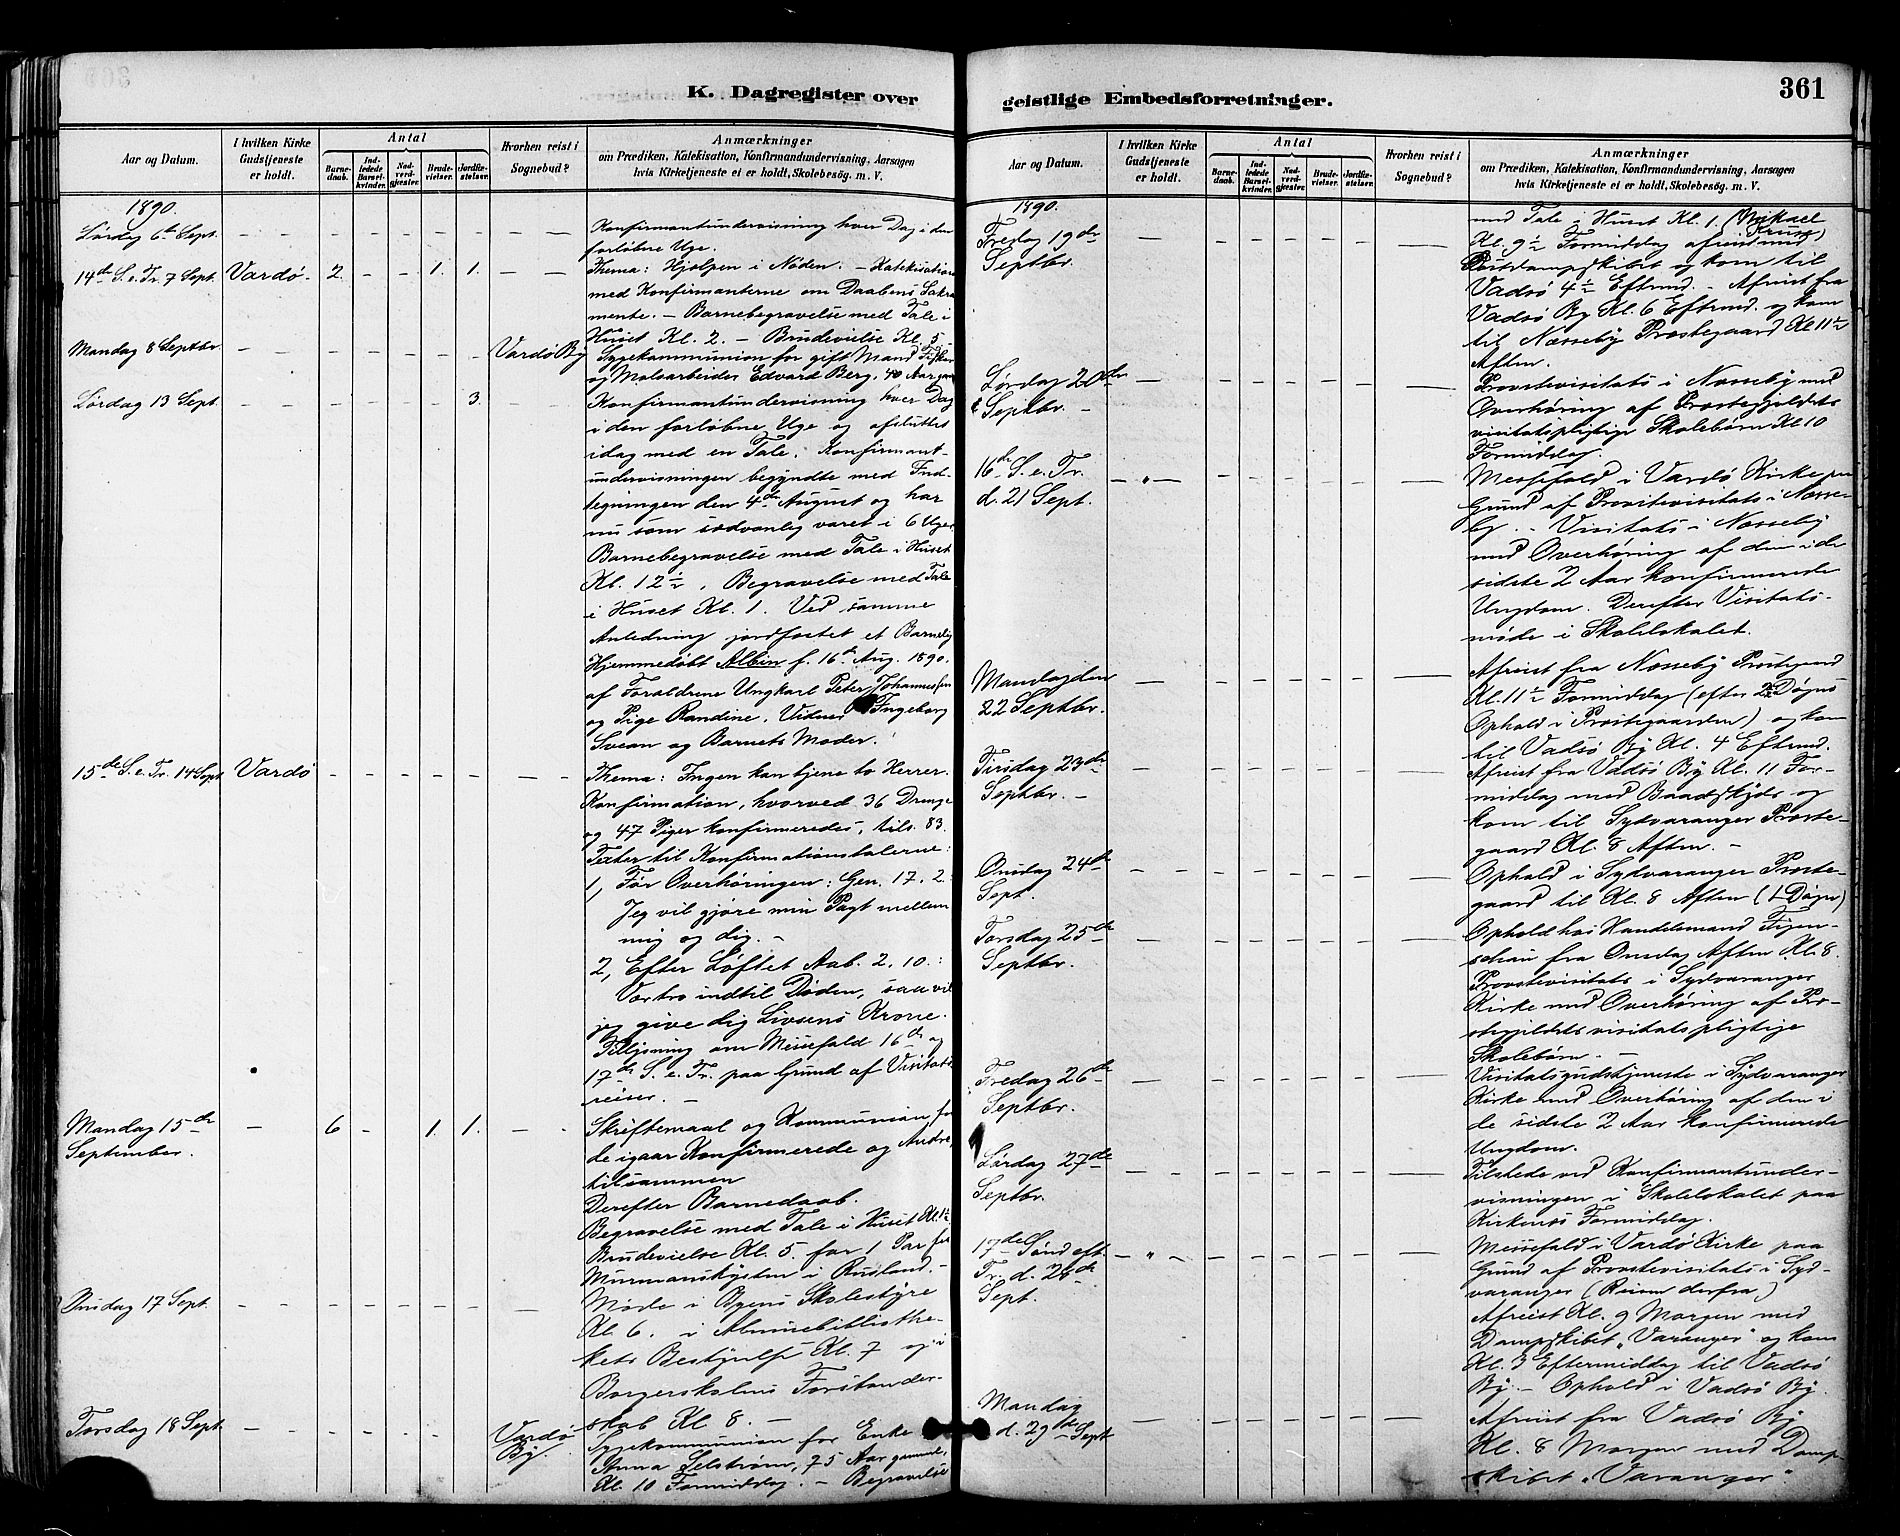 K. Dagregister over
Aar og Datum.
I hvilken Kirke Gudstjeneste er holdt.
Antal
Barnedaab.
Indledede Barselkvinder.
Nadverdgjester.
Brudevielser.
Jordfæstelser.
Hvorhen reist i Sognebud?
Anmærkninger
om Prædiken, Katekisation, Konfirmandundervisning, Aarsagen
hvis Kirketjeneste ei er holdt, Skolebesøg. m. V.
1890.
Lørdag 6te Sept.
Konfirmantundervisning hver Dag i den
forløbne Uge.
14de S. e. Tr. 7 Sept. Vardø. 2. 1. 1.
Thema: Hjælpen i Nøden. - Katekisation
med Konfirmanterne om Daabens Sakra-
mente. - Barnebegravelse med Tale i
Huset Kl. 2. - Brudevielse Kl. 5.
Mandag 8 Septbr. Vardø By
Sygekommunion for gift Mand Fisker
og Malearbeider Edvard Berg, 40 Aar gam
Lørdag 13 Sept. 3.
Konfirmantundervisning hver Dag
i den forløbne Uge og afsluttes
idag med en Tale. Konfirmant-
undervisningen begyndte med Ind-
tegningen den 4de August og har
nu som sædvanlig varet i 6 Uger.
Barnebegravelse med Tale i Huset
Kl. 12½, Begravelse med Tale
i Huset Kl. 1. Ved samme
Anledning jordfæstet et Barnelig
Hjemmedøbt Albin f. 16de Aug. 1890.
af Forældrene Ungkarl Peter Johannessen
og Pige Randine. Vidner Ingeborg
Svean og Barnets Moder.
15de S. e. Tr. 14 Sept Vardø
Thema: Ingen kan tjene to Herrer.
Konfirmation, hvorved 36 Drenge
og 47 Piger konfirmeredes, tils. 83.
Texter til Konfirmationstalerne:
1, Før Overhøringen: Gen. 17. 2:
Jeg vil gjøre min Pagt mellem
mig og dig. -
2, Efter Løftet Aab. 2. 10.:
Vær tro indtil Døden, saa vil
jeg give dig Livsens Krone.
Tillysning om Messefald 16de og
17de S. e. Tr. paa Grund af Visitats
reiser. -
Mandag 15de
September. 6 1. 1.
Skriftemaal og Kommunion for
de igaar Konfirmerede og Andre,
tilsammen
Derefter Barnedaab.
Begravelse med Tale i Huset Kl. 1½
Brudevielse Kl. 5. for 1 Par fra
Murmanskysten i Rusland. -
Onsdag 17 Sept.
Møde i Byens Skolestyre
Kl. 6. i Almuebibliothe-
kets Bestyrelse Kl. 7 og i
Borgerskolens Forstander-
skab Kl. 8. -
Torsdag 18 Sept. Vardø
By.
Sygekommunion for Enke
Anna Selstrøm, 75 Aar gammel,
Kl. 10 Formiddag. - Begravelse
geistlige Embedsforretninger.
361
Aar og Datum.
I hvilken Kirke Gudstjeneste er holdt.
Antal
Barnedaab.
Indledede Barselkvinder.
Nadverdgjester.
Brudevielser.
Jordfæstelser.
Hvorhen reist i Sognebud?
Anmærkninger
om Prædiken, Katekisation, Konfirmandundervisning, Aarsagen
hvis Kirketjeneste ei er holdt, Skolebesøg. m. V.
1890.
Fredag 19de
Septbr.
med Tale i Huset Kl. 1. (Mikael
Kruse)
Kl. 9½ Formiddag afreist med
Postdampskibet og kom til
Vadsø 4½ Eftmd. - Afreist fra
Vadsø By Kl. 6 Eftmd. og kom
til Næsseby Prestegaard Kl 11½
Aften.
Lørdag 20de
Septbr. -
Provstevisitats i Næsseby med
Overhøring af Prestegjeldets
visitatspligtige Skolebørn Kl 10
Formiddag.
16de S. e. Tr.
d. 21 Sept.
Messefald i Vardø Kirke paa
Grund af Provstevisitats i Næsse-
by. - Visitats i Næsseby
med Overhøring af den i de
sidste 2 Aar konfirmerede
Ungdom. Derefter Visitats-
møde i Skolelokalet.
Mandag den
22 Septbr.
Afreist fra Næsseby Prestegaard
Kl. 11½ Formiddag (efter 2½ Døgns
Ophold i Prestegaarden) og kom
til Vadsø By Kl. 4 Eftmd.
Tirsdag 23de
Septbr. -
Afreist fra Vadsø By Kl. 11 For-
middag med Baadskyds og
kom til Sydvaranger Preste-
gaard Kl. 8 Aften. -
Onsdag 24de
Sept.
Ophold i Sydvaranger Preste-
gaard til Kl. 8 Aften (1 Døgn)
Torsdag 25de
Septbr.
Ophold hos Handelsmand Figen-
schau fra Onsdag Aften Kl. 8.
Provstevisitats i Sydvaranger
Kirke med Overhøring af Pre-
stegjeldets visitatspligtige
Skolebørn. -
Fredag 26de
Septbr.
Visitatsgudstjeneste i Sydvaranger
Kirke med Overhøring af den i
de sidste 2 Aar konfirmerede
Ungdom.
Lørdag 27de
Septbr.
Tilstede ved Konfirmantunder-
visningen i Skolelokalet paa
Kirkenæs Formiddag.
17de Sønd eft.
Tr. d. 28de
Sept.
Messefald i Vardø Kirke paa
Grund af Provstevisitats i Syd-
varanger (Reisen derfra)
Afreist Kl. 9 Morgen med
Dampskibet „Varanger" og kom
Kl. 3 Eftermiddag til Vadsø
By. - Ophold i Vadsø By.
Mandag
d. 29de Sept
Afreist fra Vadsø By
Kl. 8 Morgen med Damp
skibet „Varanger"